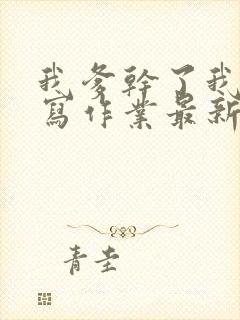 我爹幹了我
寫作業最新
青圭